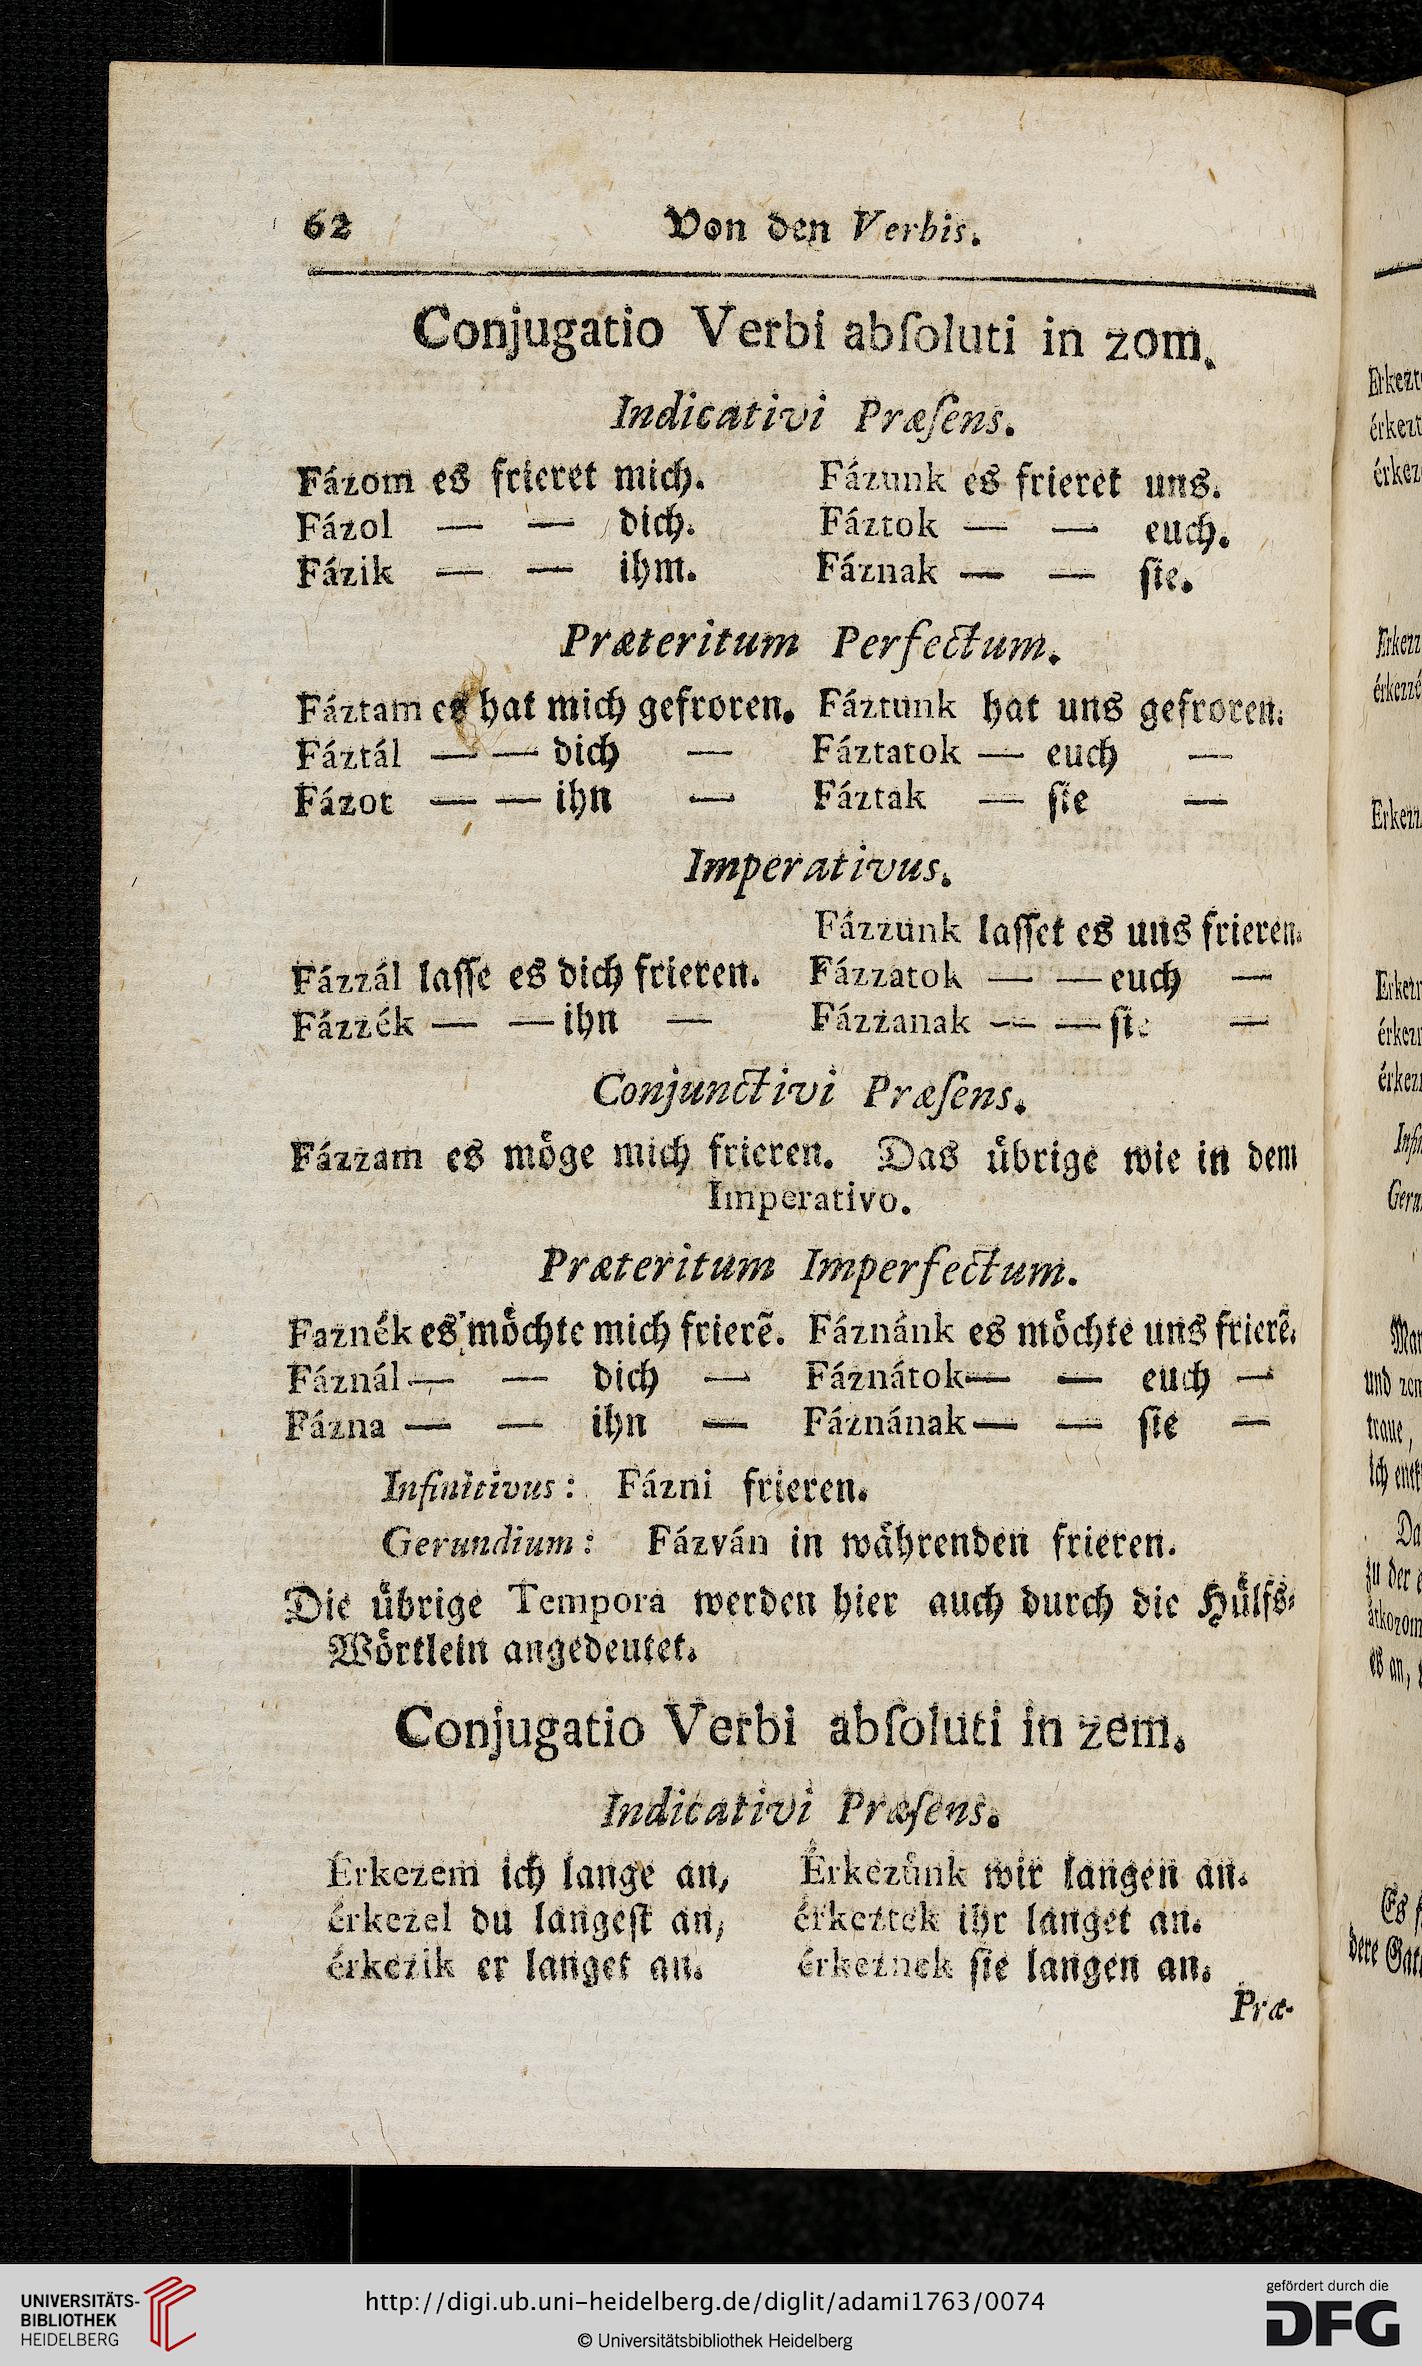 62 Von den Verbis.
Conjugatio Verbi abſoluti in zom.
Indicativi Præſens.
Fázom es frieret mich. Fázunk es frieret uns.
Fázol — — dich. Fáztok — — euch.
Fázik — — ihm. Fáznak — — ſie.
Præteritum Perfectum.
Fáztam es hat mich gefroren. Fáztunk hat uns gefroren.
Fáztál — — dich — Fáztatok — euch —
Fázot — — ihn — Fáztak — ſie —
Imperativus.
Fázzunk laſſet es uns frieren.
Fázzál laſſe es dich frieren. Fázzatok — — euch —
Fázzék — — ihn — Fázzanak — — ſie —
Conjunctivi Præſens.
Fázzam es möge mich frieren. Das übrige wie in dem
Imperativo.
Præteritum Imperfectum.
Faznék es möchte mich frierẽ. Fáznánk es möchte uns frierẽ.
Fáznál — — dich — Fáznátok — — euch —
Fázna — — ihn — Fáznának — — ſie —
Infinitivus: Fázni frieren.
Gerundium: Fázván in währenden frieren.
Die übrige Tempora werden hier auch durch die Hülfs-
Wörtlein angedeutet.
Conjugatio Verbi abſoluti in zem.
Indicativi Præſens.
Érkezem ich lange an, Érkezünk wir langen an.
érkezel du langeſt an, érkeztek ihr langet an.
érkezik er langet an. érkeznek ſie langen an.
Præ-
Erkezt
érkezt
érkez
Erkezz
érkezzé
Erkezz
Erkezn
érkezn
érkezn
Inſi
Geru
Man
und zem
traue,
ich entſ
Da
zu der e
átkozom
es an,
Es
dere Gat
UNIVERSITÄTS-
BIBLIOTHEK
HEIDELBERG
http://digi.ub.uni-heidelberg.de/diglit/adami1763/0074
© Universitätsbibliothek Heidelberg
gefördert durch die
DFG